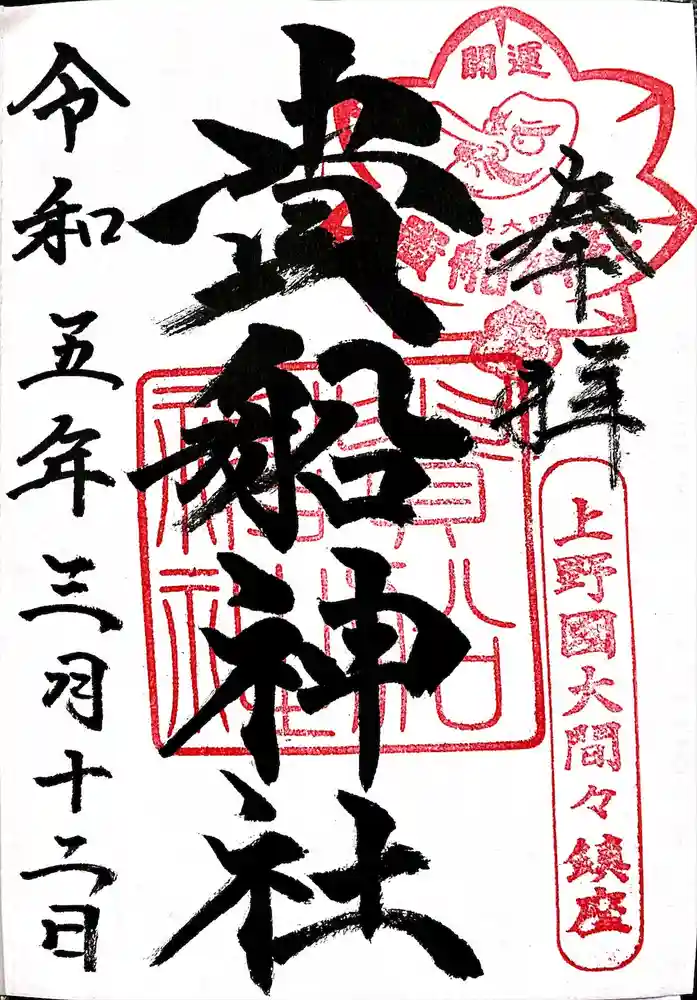 奉拝
開運
上野國大間々鎮座
貴船神社
貴船神社
令和五年三月十二日